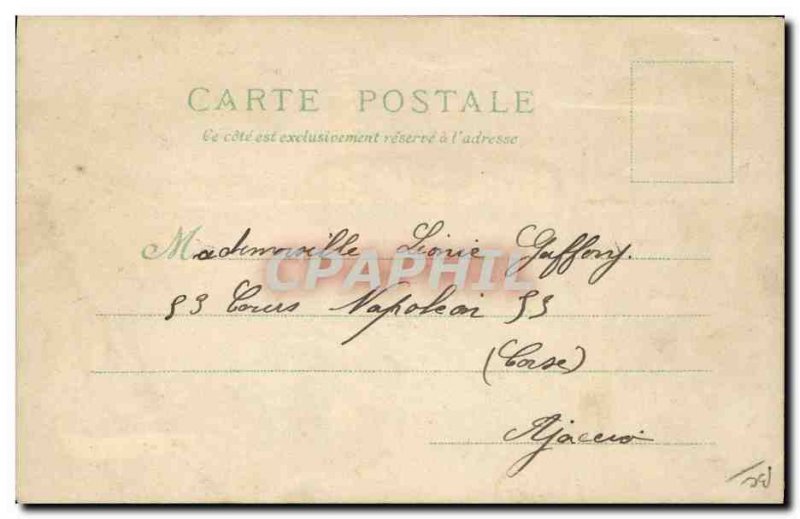 CARTE POSTALE
Ce côté est exclusivement réservé à l'adresse
Mademoiselle Léonie Gaffory.
CPAPHIL
53 Cours Napoléon 53
(Corse)
Ajaccio